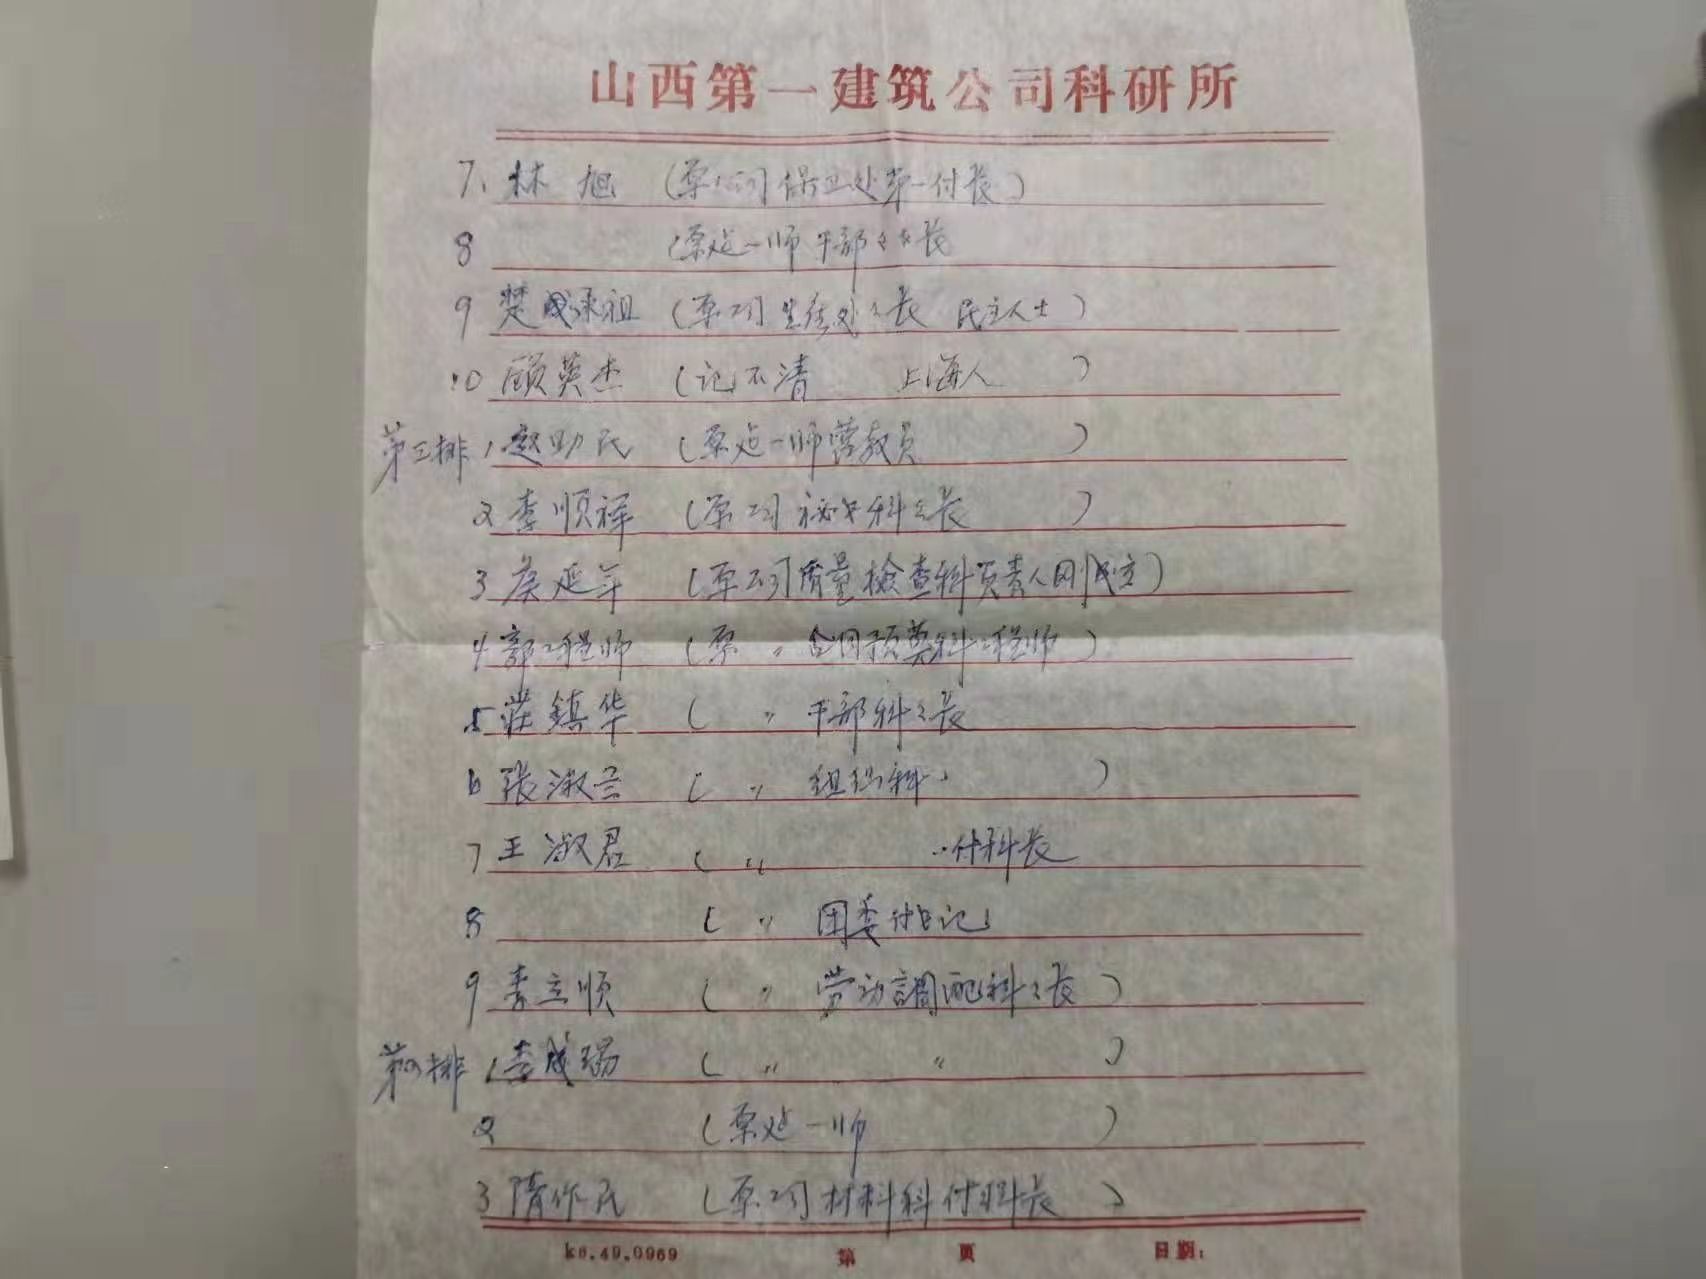 山西第一建筑公司科研所
7、林旭 (原公司保卫处第一付长)
8 (原建一师干部
9 楚成承祖 (原公司 长 民主人士)
10 顾英杰 (记不清 上海人 )
第三排 1 赵助民 (原建一师营教员 )
2 李顺祥 (原公司秘书科 长 )
3 延年 (原公司质量檢查科负责人 刚成立)
4 郭工程师 (原 〃 合同预算科工程师)
5 莊鎮华 ( 〃 干部科 长
6 张淑兰 ( 〃 组织科 )
7 王淑君 ( 〃 付科长
8 ( 〃 团委付书记
9 李立顺 ( 〃 劳动調配科 长 )
第四排 1 李成瑞 ( 〃 〃 )
2 (原建一师 )
3 隋作民 (原公司材料科付科长 )
k6.49.0969 第 页 日期：